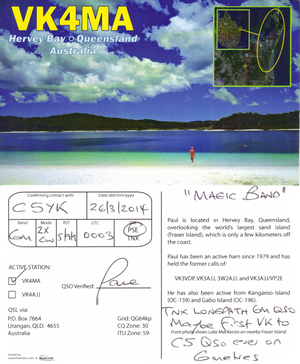 VK4MA
Hervey Bay - Queensland
Australia
Confirming contact with:
Date (dd/mm/yyyy)
C5YK
26/3/2014
Band
Mode
RST
UTC
QSL
6m
2X
CW
0003
PSE
TNX
"MAGIC BAND"
Paul is located in Hervey Bay, Queensland,
overlooking the world's largest sand island
(Fraser Island), which is only a few kilometers off
the coast.
Paul has been an active ham since 1979 and has
held the former calls of:
VK3VDP, VK3AJJ, 3W2AJJ, and VK3AJJ/VP2E
He has also been active from Kangaroo Island
(OC-139) and Gabo Island (OC-196).
ACTIVE STATION:
VK4MA
VK4AJJ
QSO Verified:
QSL via:
P.O. Box 7664
Urangan, QLD. 4655
Australia
Grid: QG64kp
CQ Zone: 30
ITU Zone: 59
TNX LONGPATH 6M QSO
Front photo shows Lake MacKenzie on nearby Fraser Island
MAYBE FIRST VK TO
C5 QSO EVER ON